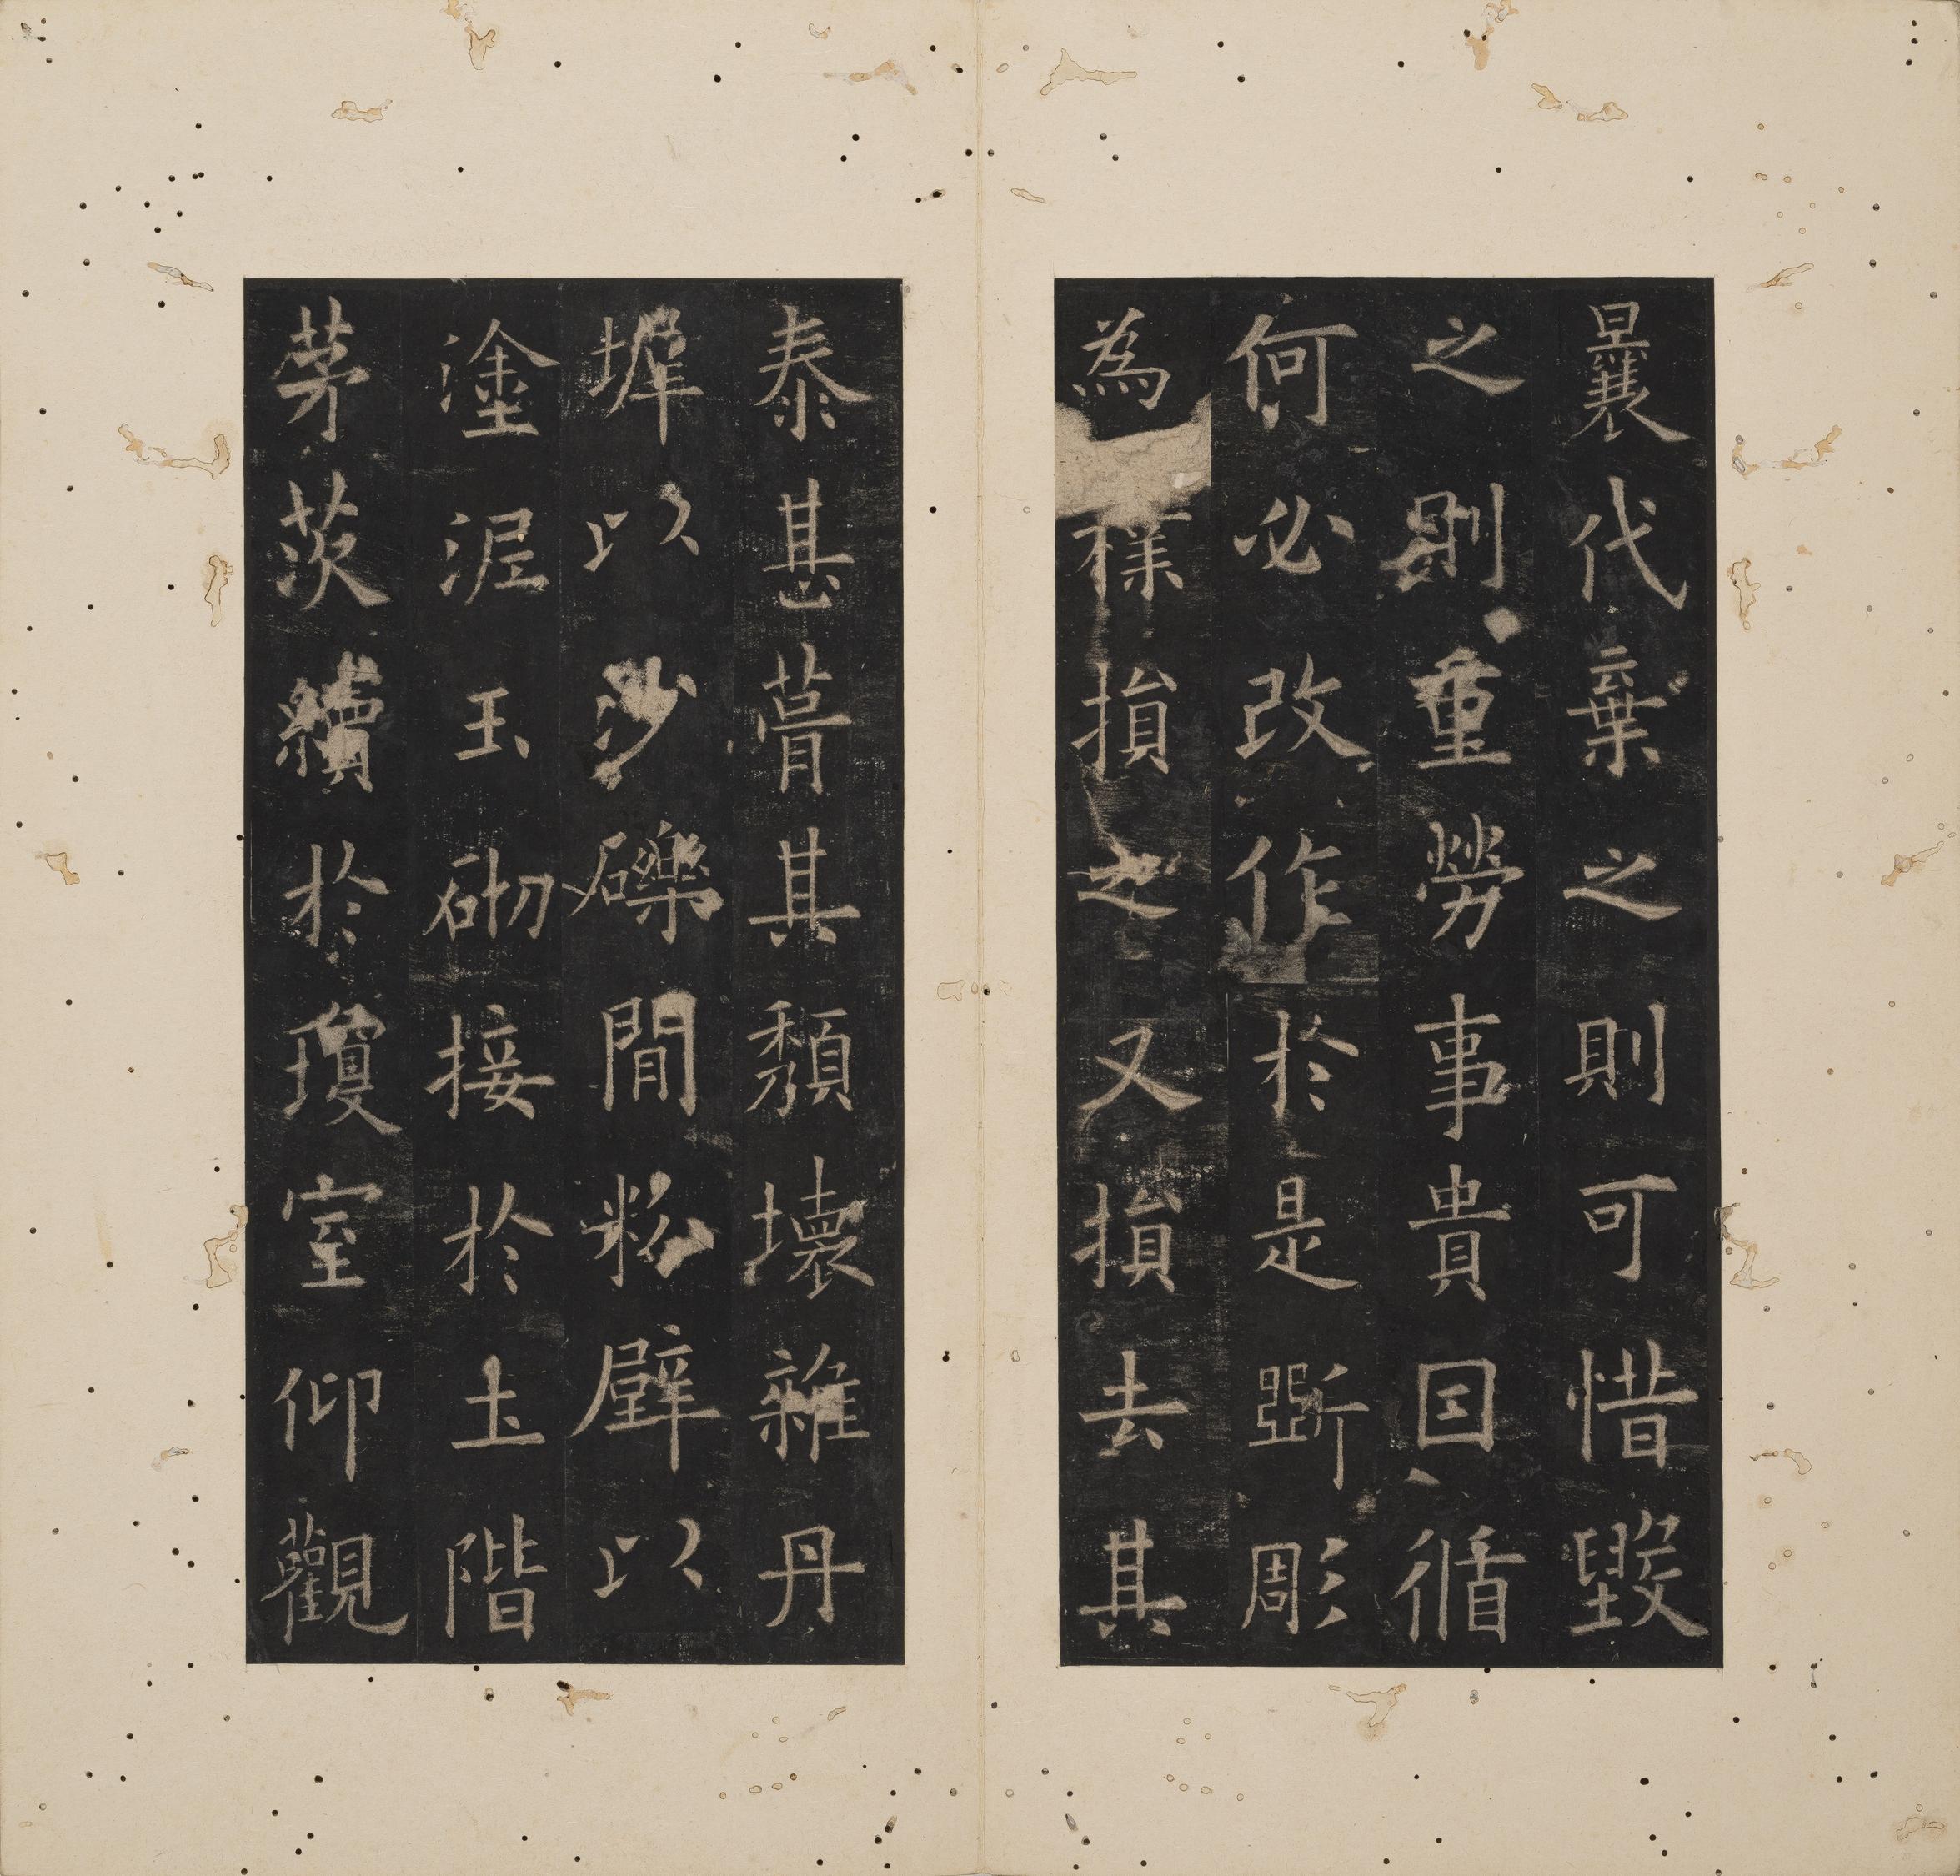 曩代棄之則可惜毀
之則重勞事貴因循
何必改作於是斲彫
為樸損之又損去其
泰甚葺其頹壞雜丹
墀以沙礫間粉壁以
塗泥玉砌接於土階
茅茨續於瓊室仰觀